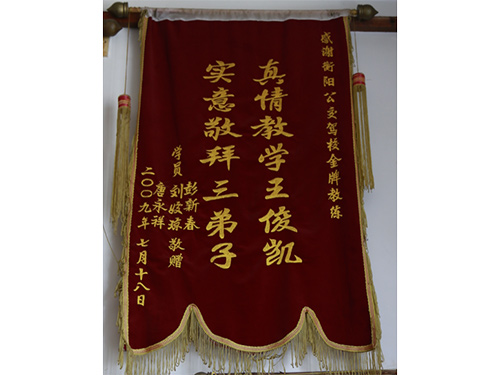 感谢衡阳公交驾校金牌教练
真情教学王俊凯
实意敬拜三弟子
彭新春
学员刘姣琼敬赠
唐永祥
二〇〇九年七月十八日